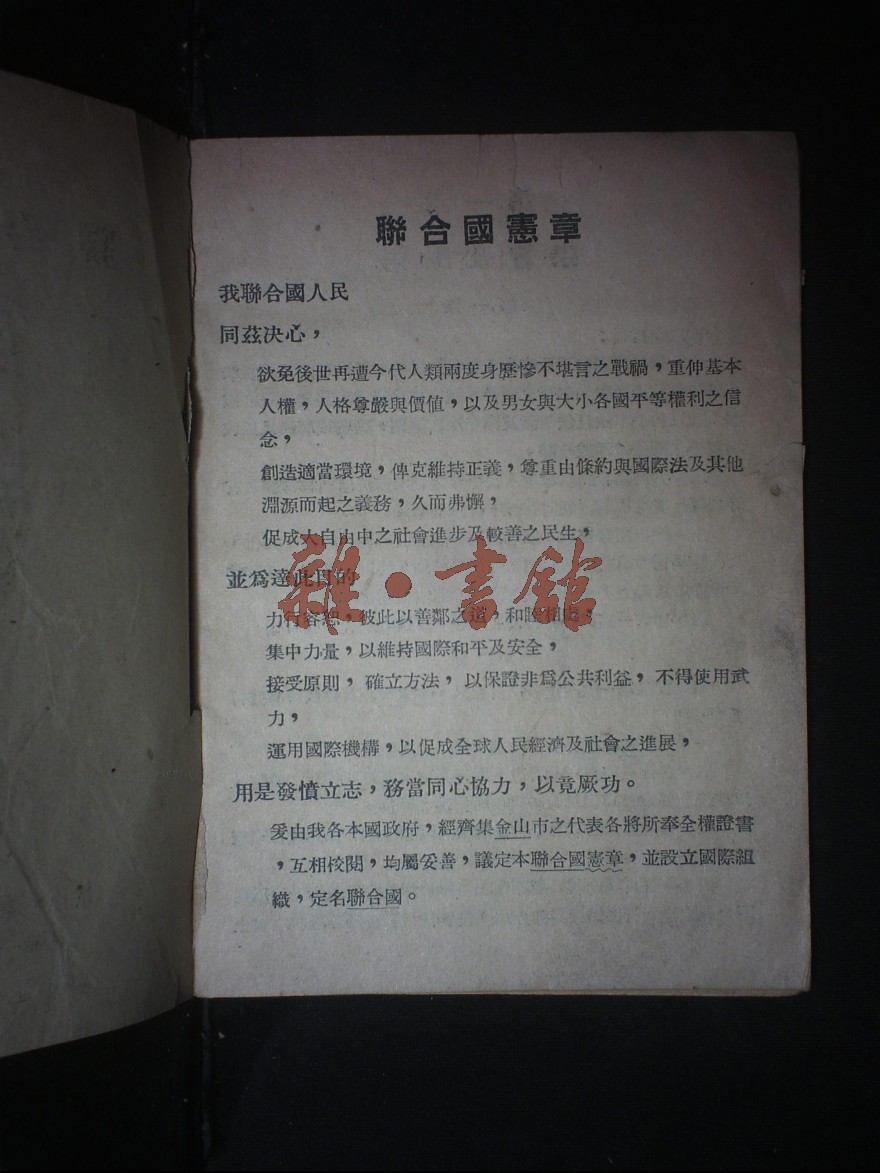 聯合國憲章
我聯合國人民
同茲決心，
欲免後世再遭今代人類兩度身歷慘不堪言之戰禍，重伸基本
人權，人格尊嚴與價值，以及男女與大小各國平等權利之信
念，
創造適當環境，俾克維持正義，尊重由條約與國際法及其他
淵源而起之義務，久而弗懈，
促成大自由中之社會進步及較善之民生，
並爲達此目的
力行容恕，彼此以善鄰之道，和睦相處，
集中力量，以維持國際和平及安全，
接受原則，確立方法，以保證非爲公共利益，不得使用武
力，
運用國際機構，以促成全球人民經濟及社會之進展，
用是發憤立志，務當同心協力，以竟厥功。
爰由我各本國政府，經齊集金山市之代表各將所奉全權證書
，互相校閱，均屬妥善，議定本聯合國憲章，並設立國際組
織，定名聯合國。
雜·書館